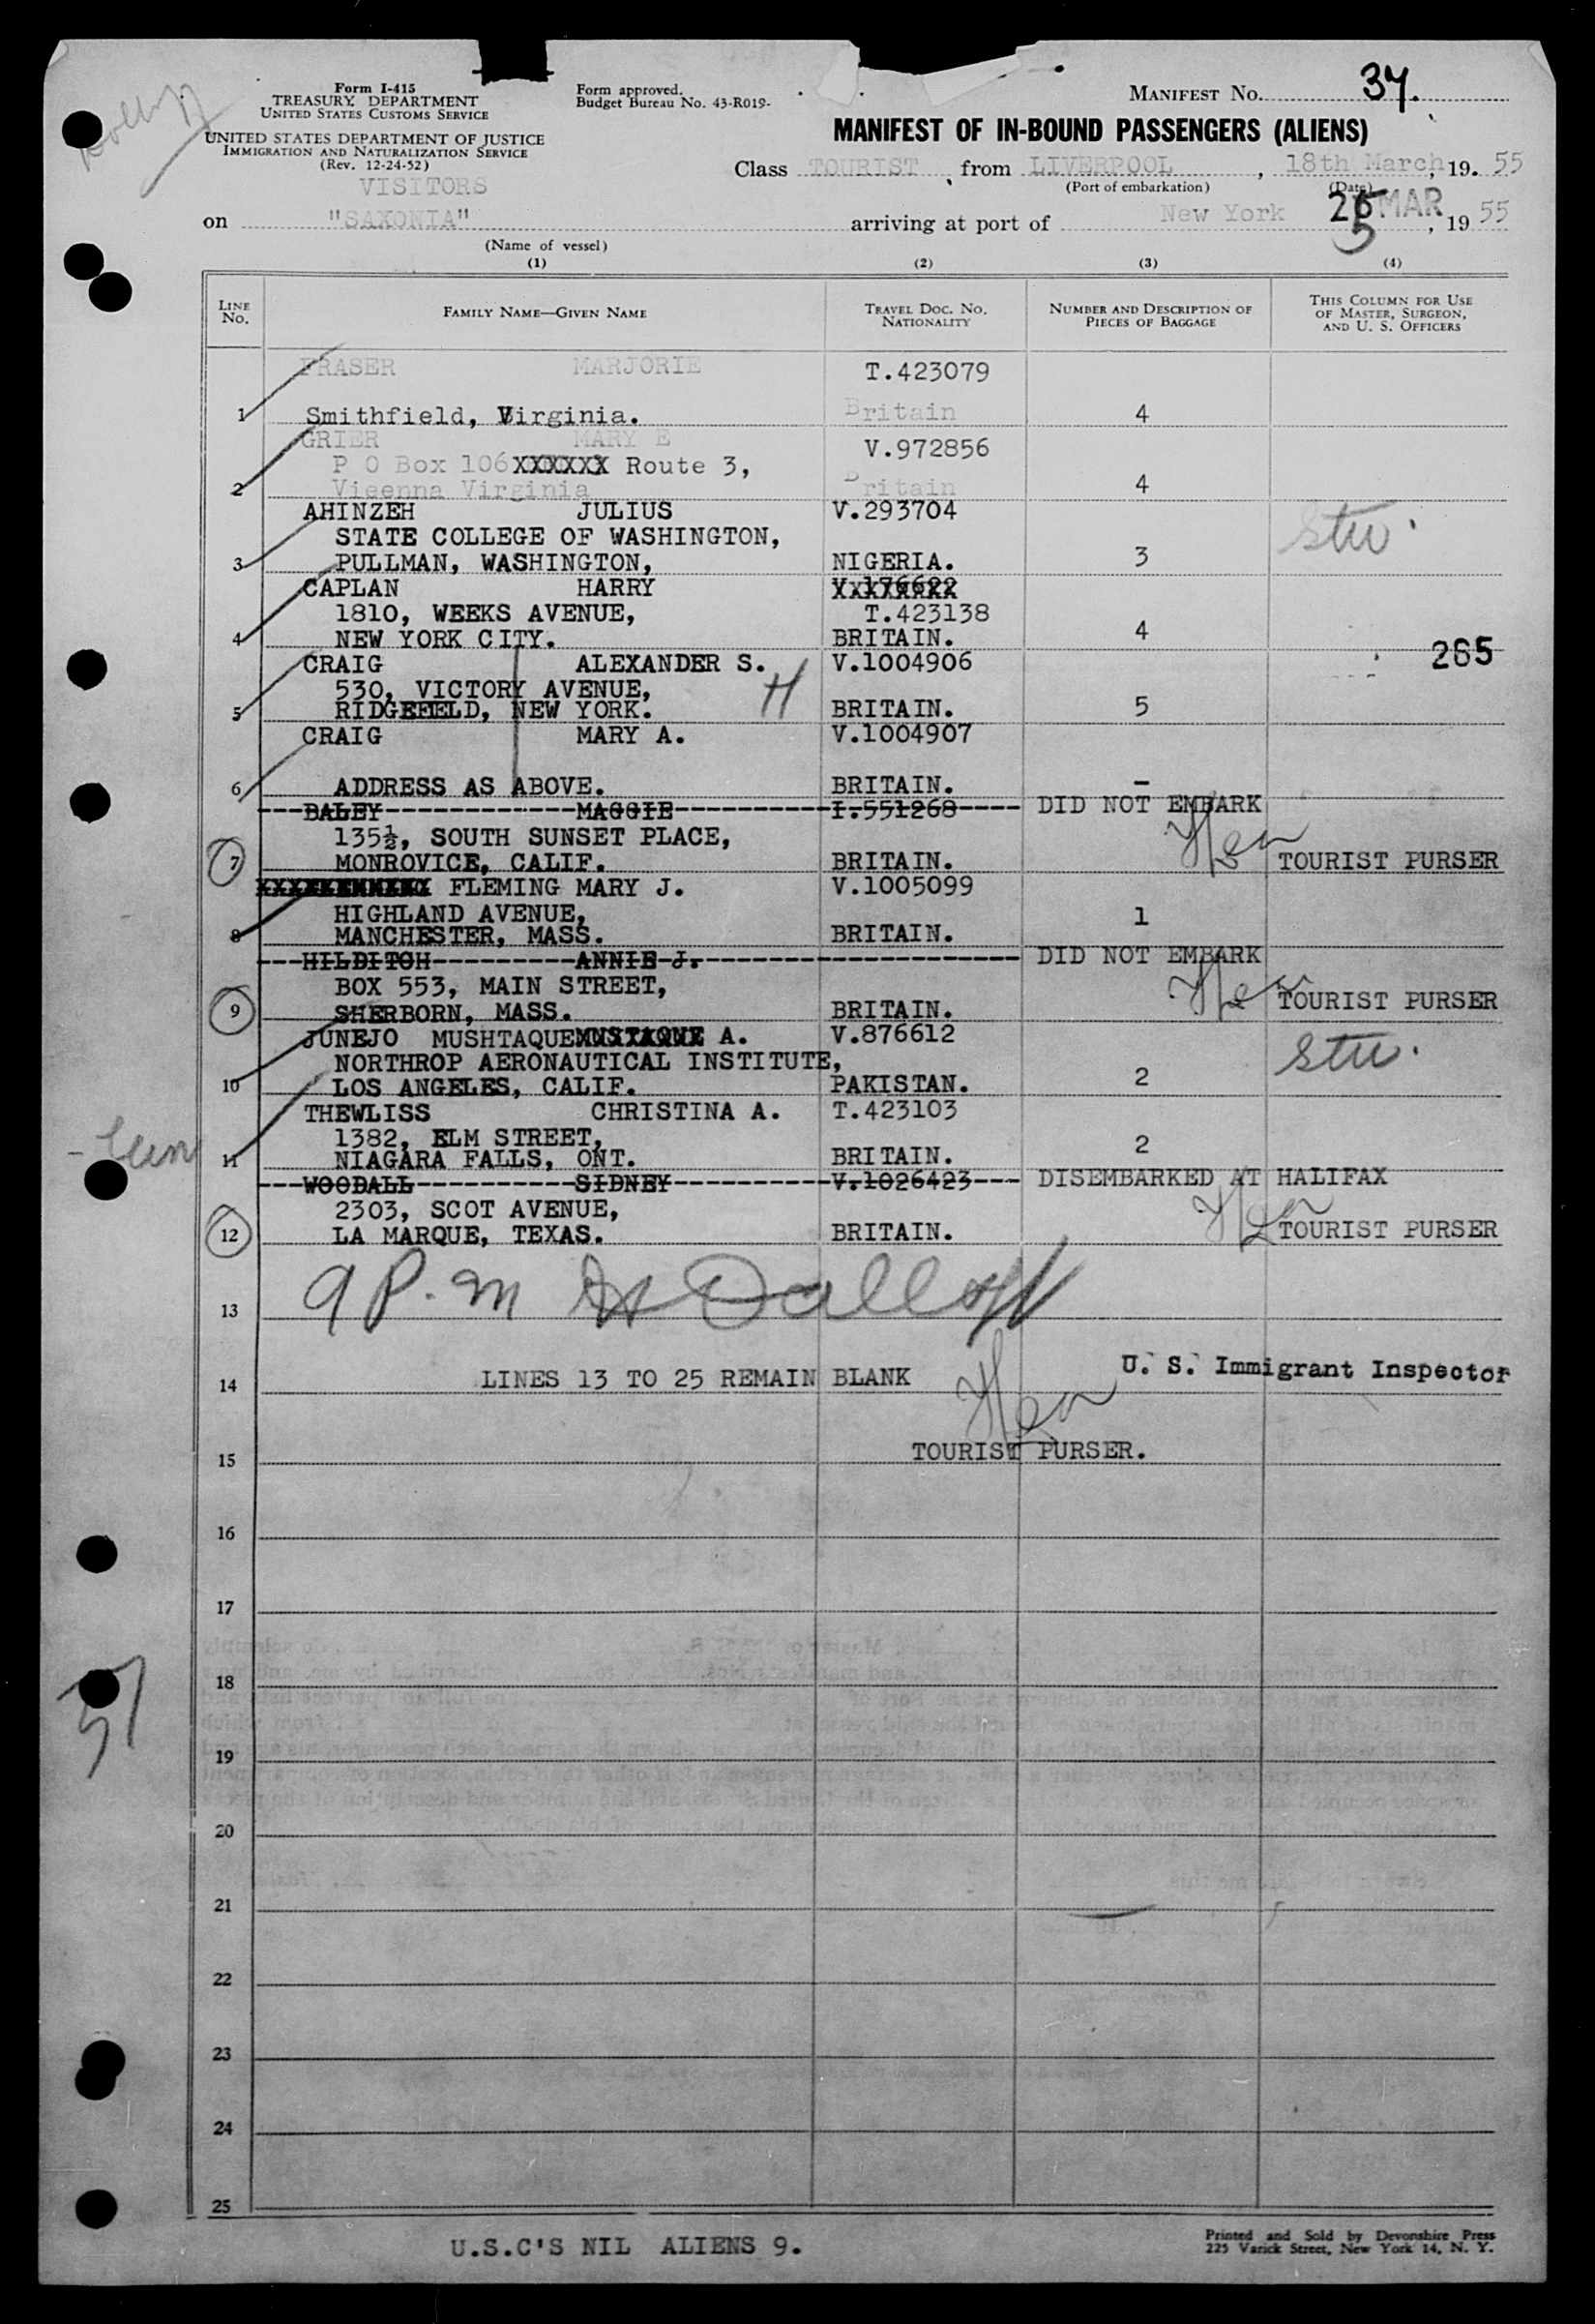 Form I-415
TREASURY DEPARTMENT
UNITED STATES CUSTOMS SERVICE
UNITED STATES DEPARTMENT OF JUSTICE
IMMIGRATION AND NATURALIZATION SERVICE
(Rev. 12-24-52)
VISITORS
Form approved.
Budget Bureau No. 43-R019-
MANIFEST No. 34.
MANIFEST OF IN-BOUND PASSENGERS (ALIENS)
Class TOURIST, from LIVERPOOL, 18th March, 19. 55
(Port of embarkation) (Date)
on "SAXONIA" arriving at port of New York 25 MAR, 19 55
(Name of vessel)
(1) (2) (3) (4)
LINE No. FAMILY NAME—GIVEN NAME TRAVEL DOC. No. NATIONALITY NUMBER AND DESCRIPTION OF PIECES OF BAGGAGE THIS COLUMN FOR USE OF MASTER, SURGEON, AND U. S. OFFICERS
FRASER MARJORIE T.423079
1 Smithfield, Virginia. Britain 4
GRIER MARY E V.972856
P O Box 106XXXXXX Route 3,
2 Vieenna Virginia Britain 4
AHINZEH JULIUS V.293704
STATE COLLEGE OF WASHINGTON, Stu.
3 PULLMAN, WASHINGTON, NIGERIA. 3
CAPLAN HARRY V.176622
1810, WEEKS AVENUE, T.423138
4 NEW YORK CITY. BRITAIN. 4
265
CRAIG ALEXANDER S. V.1004906
530, VICTORY AVENUE, H
5 RIDGEFIELD, NEW YORK. BRITAIN. 5
CRAIG MARY A. V.1004907
6 ADDRESS AS ABOVE. BRITAIN. -
---BALEY------------MAGGIE----------I.551268---- DID NOT EMBARK
135½, SOUTH SUNSET PLACE,
7 MONROVICE, CALIF. BRITAIN. TOURIST PURSER
FLEMING MARY J. V.1005099
HIGHLAND AVENUE, 1
8 MANCHESTER, MASS. BRITAIN.
---HILDITCH---------ANNIE-J.-------------------- DID NOT EMBARK
BOX 553, MAIN STREET,
9 SHERBORN, MASS. BRITAIN. TOURIST PURSER
JUNEJO MUSHTAQUE A. V.876612 Stu.
NORTHROP AERONAUTICAL INSTITUTE,
10 LOS ANGELES, CALIF. PAKISTAN. 2
THEWLISS CHRISTINA A. T.423103
1382, ELM STREET, 2
11 NIAGARA FALLS, ONT. BRITAIN.
---WOODALL----------SIDNEY----------V.1026423--- DISEMBARKED AT HALIFAX
2303, SCOT AVENUE,
12 LA MARQUE, TEXAS. BRITAIN. TOURIST PURSER
13
U. S. Immigrant Inspector
14 LINES 13 TO 25 REMAIN BLANK
15 TOURIST PURSER.
16
17
18
19
20
21
22
23
24
25
U.S.C'S NIL ALIENS 9.
Printed and Sold by Devonshire Press
225 Varick Street, New York 14, N. Y.